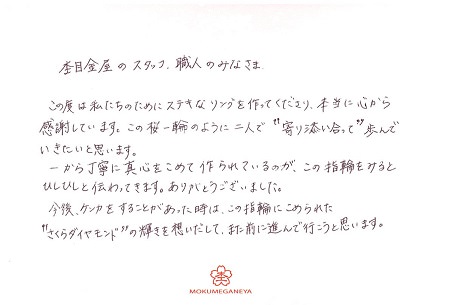 杢目金屋のスタッフ、職人のみなさま
この度は私たちのためにステキなリングを作ってくださり、本当に心から
感謝しています。この桜一輪のように二人で“寄り添い合って”歩んで
いきたいと思います。
一から丁寧に真心をこめて作られているのが、この指輪をみると
ひしひしと伝わってきます。ありがとうございました。
今後、ケンカをすることがあった時は、この指輪にこめられた
“さくらダイヤモンド”の輝きを想いだして、また前に進んで行こうと思います。
MOKUMEGANEYA